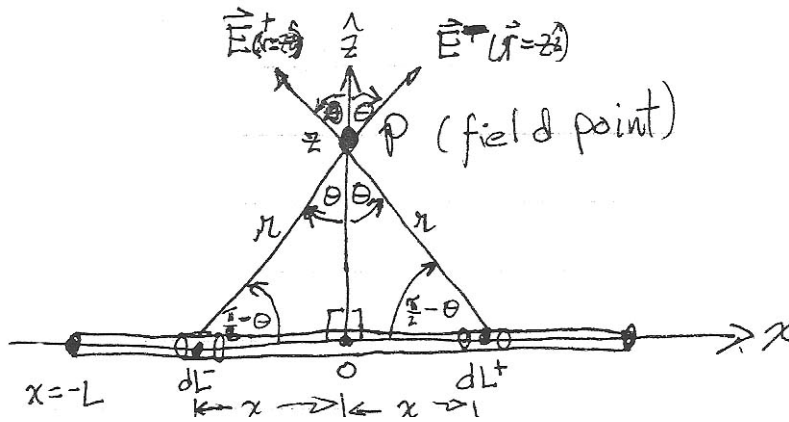 E⃗⁺(r⃗=zẑ) ẑ E⃗⁻(r⃗=zẑ)
θ θ
z P (field point)
θ θ
r r
π/2-θ π/2-θ
x
x=-L dL⁻ O dL⁺
x x